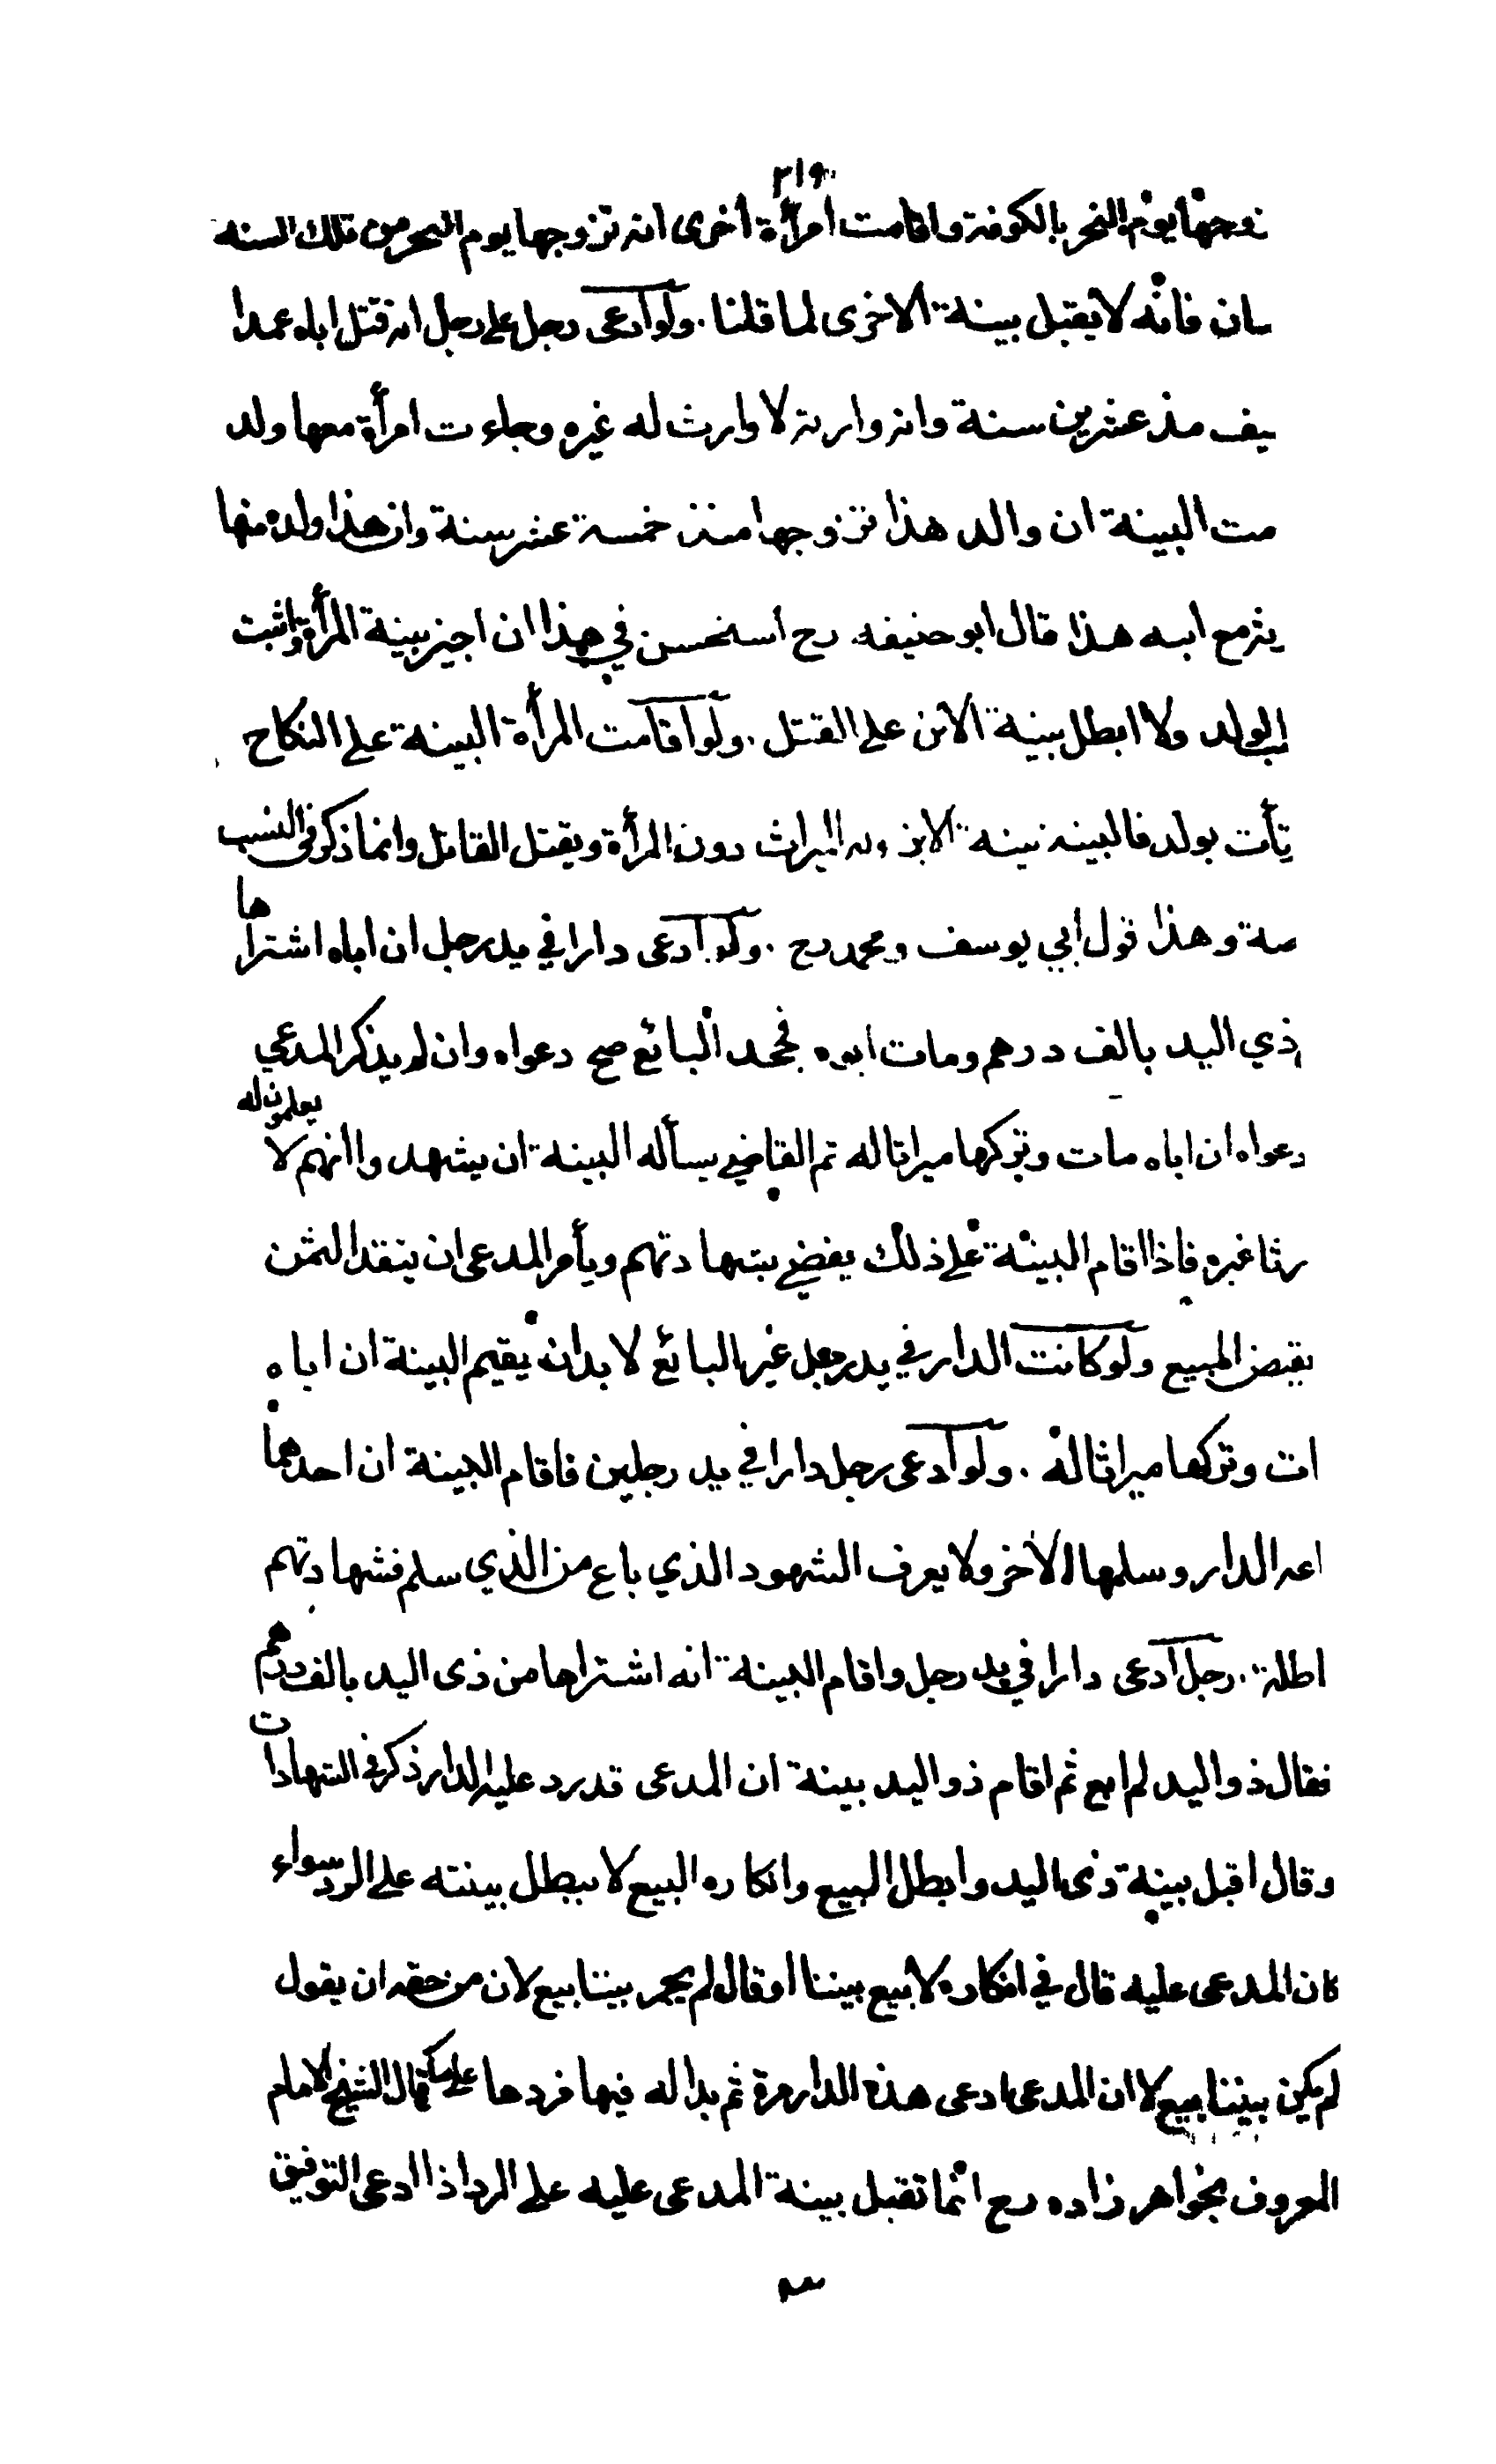 ٢١٩
تزوجها يوم النحر بالكوفة واقامت امرأة أخرى انه تزوجها يوم النحر من تلك السنه
سان فانه لا يقبل بينة الاخرى لما قلنا . ولو ادعى رجل على رجل انه قتل اباه عمدا
يف منذ عشرين سنة وانه وارثه لا وارث له غيره وجاءت امرأة معها ولد
مت البينة ان والد هذا تزوجها منذ خمسة عشر سنة وان هذا ولده منها
يثه مع ابنه هذا قال ابو حنيفه رح استحسن في هذا ان اجيز بينة المرأة واثبت
الولد ولا ابطل بينة الابن على القتل . ولو اقامت المرأة البينة على النكاح
تأت بولد فالبينه بينة الابن وله الميراث دون المرأة ويقتل القاتل وانما ذكر في النسب
صة وهذا قول ابي يوسف ومحمد رح . ولو ادعى دارا في يد رجل ان اباه اشتراها
ذي اليد بالف درهم ومات ابوه فجحد البائع صح دعواه وان لم يذكر المدعي
دعواه ان اباه مات وتركها ميراثا له ثم القاضي يسأله البينة ان يشهدوا انهم لا يعلمون له
رثا غيره فاذا اقام البينة على ذلك يقضي بشهادتهم ويأمر المدعى ان ينقد الثمن
يقبض المبيع ولو كانت الدار في يد رجل غير البائع لا بد ان يقيم البينة ان اباه
ات وتركها ميراثا له . ولو ادعى رجل دارا في يد رجلين فاقام البينة ان احدهما
اعه الدار وسلمها الاخر ولا يعرف الشهود الذي باع من الذي سلم فشهادتهم
اطلة . رجل ادعى دارا في يد رجل واقام البينة انه اشتراها من ذى اليد بالف درهم
فقال ذو اليد لم ابع ثم اقام ذو اليد بينة ان المدعى قد رد عليه الدار ذكر في الشهادات
وقال اقبل بينة ذى اليد وابطل البيع وانكاره البيع لا يبطل بينته على الرد سواء
كان المدعى عليه قال في انكاره لا بيع بيننا او قال لم يجر بيننا بيع لان من حقه ان يقول
لم يكن بيننا بيع لا ان المدعى ادعى هذه الدار مرة ثم بدا له فيها فردها قال الشيخ الامام
المعروف بخواهر زاده رح انما تقبل بينة المدعى عليه على الرد اذا ادعى التوفيق